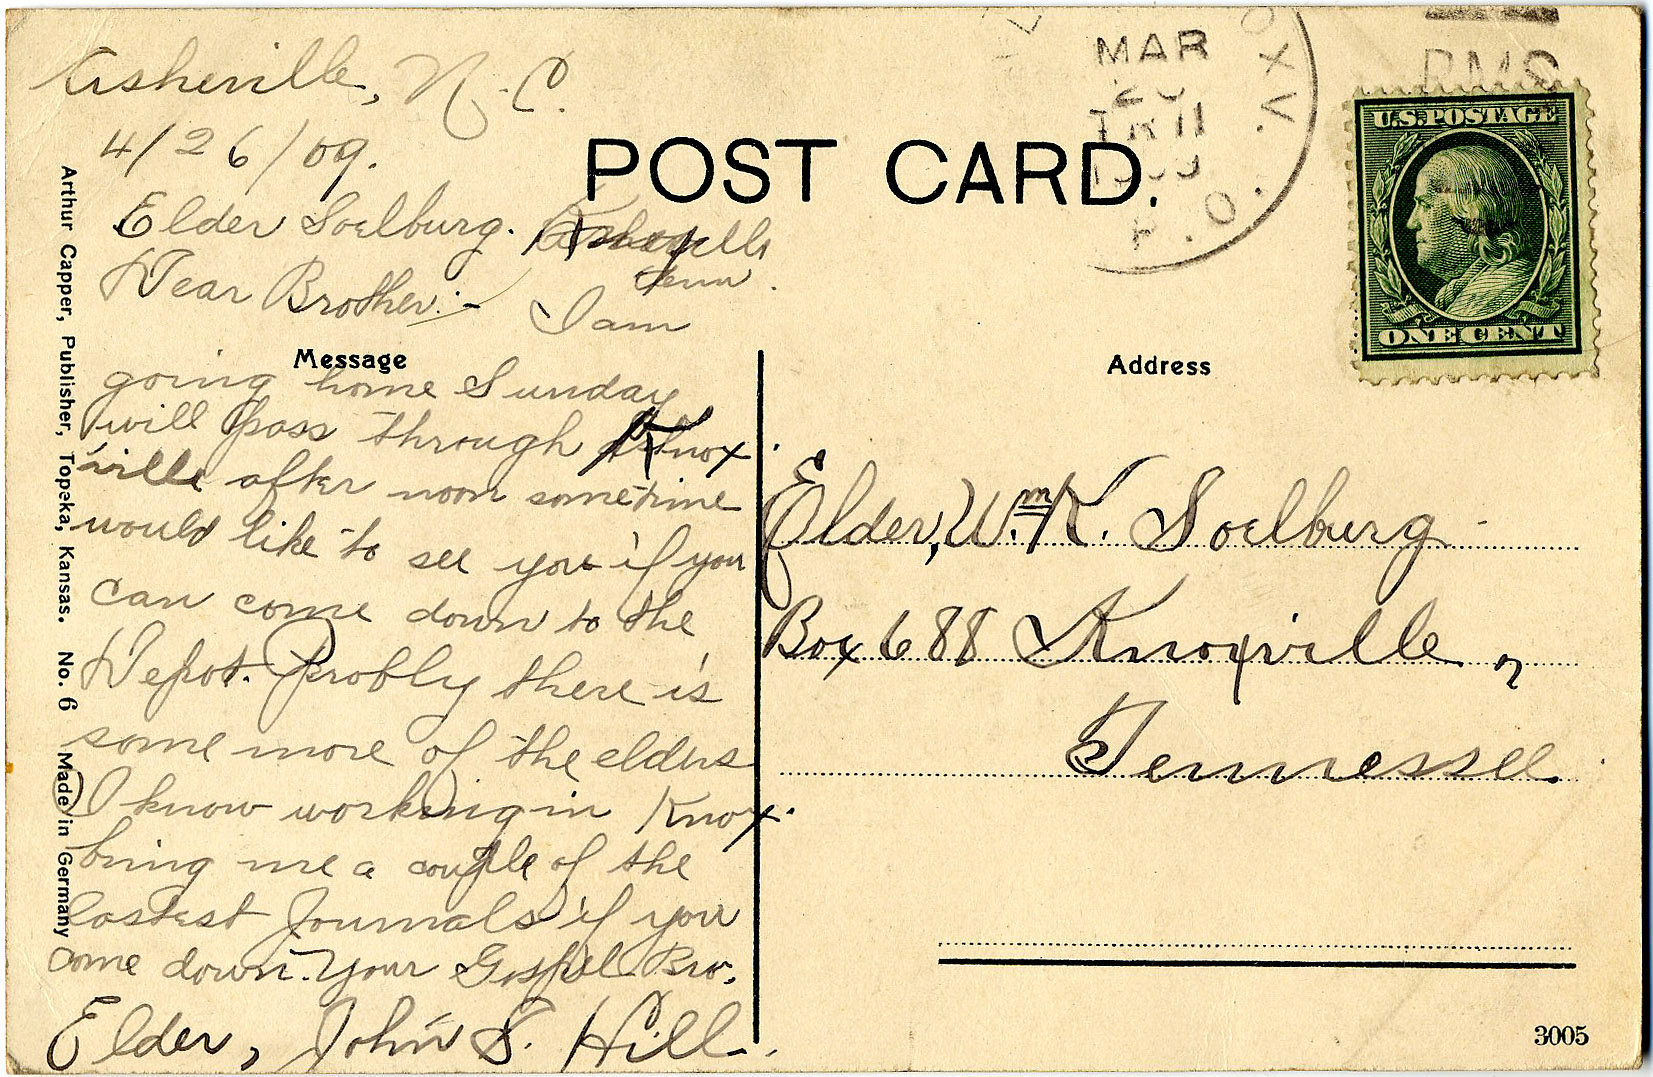 Asheville, N.C.
4/26/09.
Elder Soelburg.
Tenn.
Dear Brother:- I am
Message
going home Sunday
will pass through Knox
ville after noon sometime
would like to see you if you
can come down to the
Depot. Probly there is
some more of the elders
I know working in Knox.
bring me a couple of the
lastest Journals if you
come down. Your Gospel Bro.
Elder, John S. Hill.
Arthur Capper, Publisher, Topeka, Kansas. No. 6 Made in Germany
POST CARD.
MAR
OXV.
P.O.
RMS
U.S. POSTAGE
ONE CENT
Address
Elder, Wm K. Soelburg
Box 688 Knoxville,
Tennessee.
3005